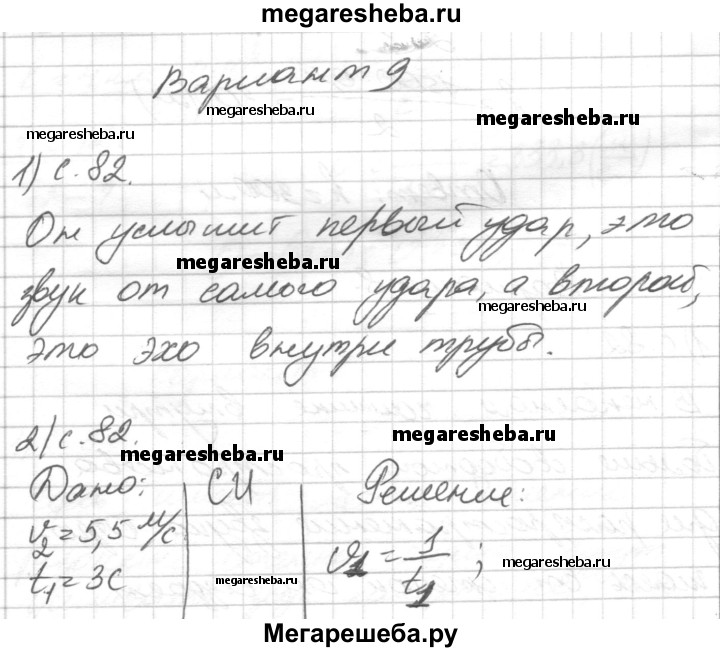 megaresheba.ru
Вариант 9
megaresheba.ru
megaresheba.ru
megaresheba.ru
1) с. 82.
Он услышит первый удар, это
megaresheba.ru
звук от самого удара, а второй,
megaresheba.ru
это эхо внутри трубы.
2) с. 82.
megaresheba.ru
megaresheba.ru
Дано: СИ Решение:
v₂ = 5,5 м/с
t₁ = 3с
v₁ = 1/t₁ ;
megaresheba.ru
megaresheba.ru
Мегарешеба.ру